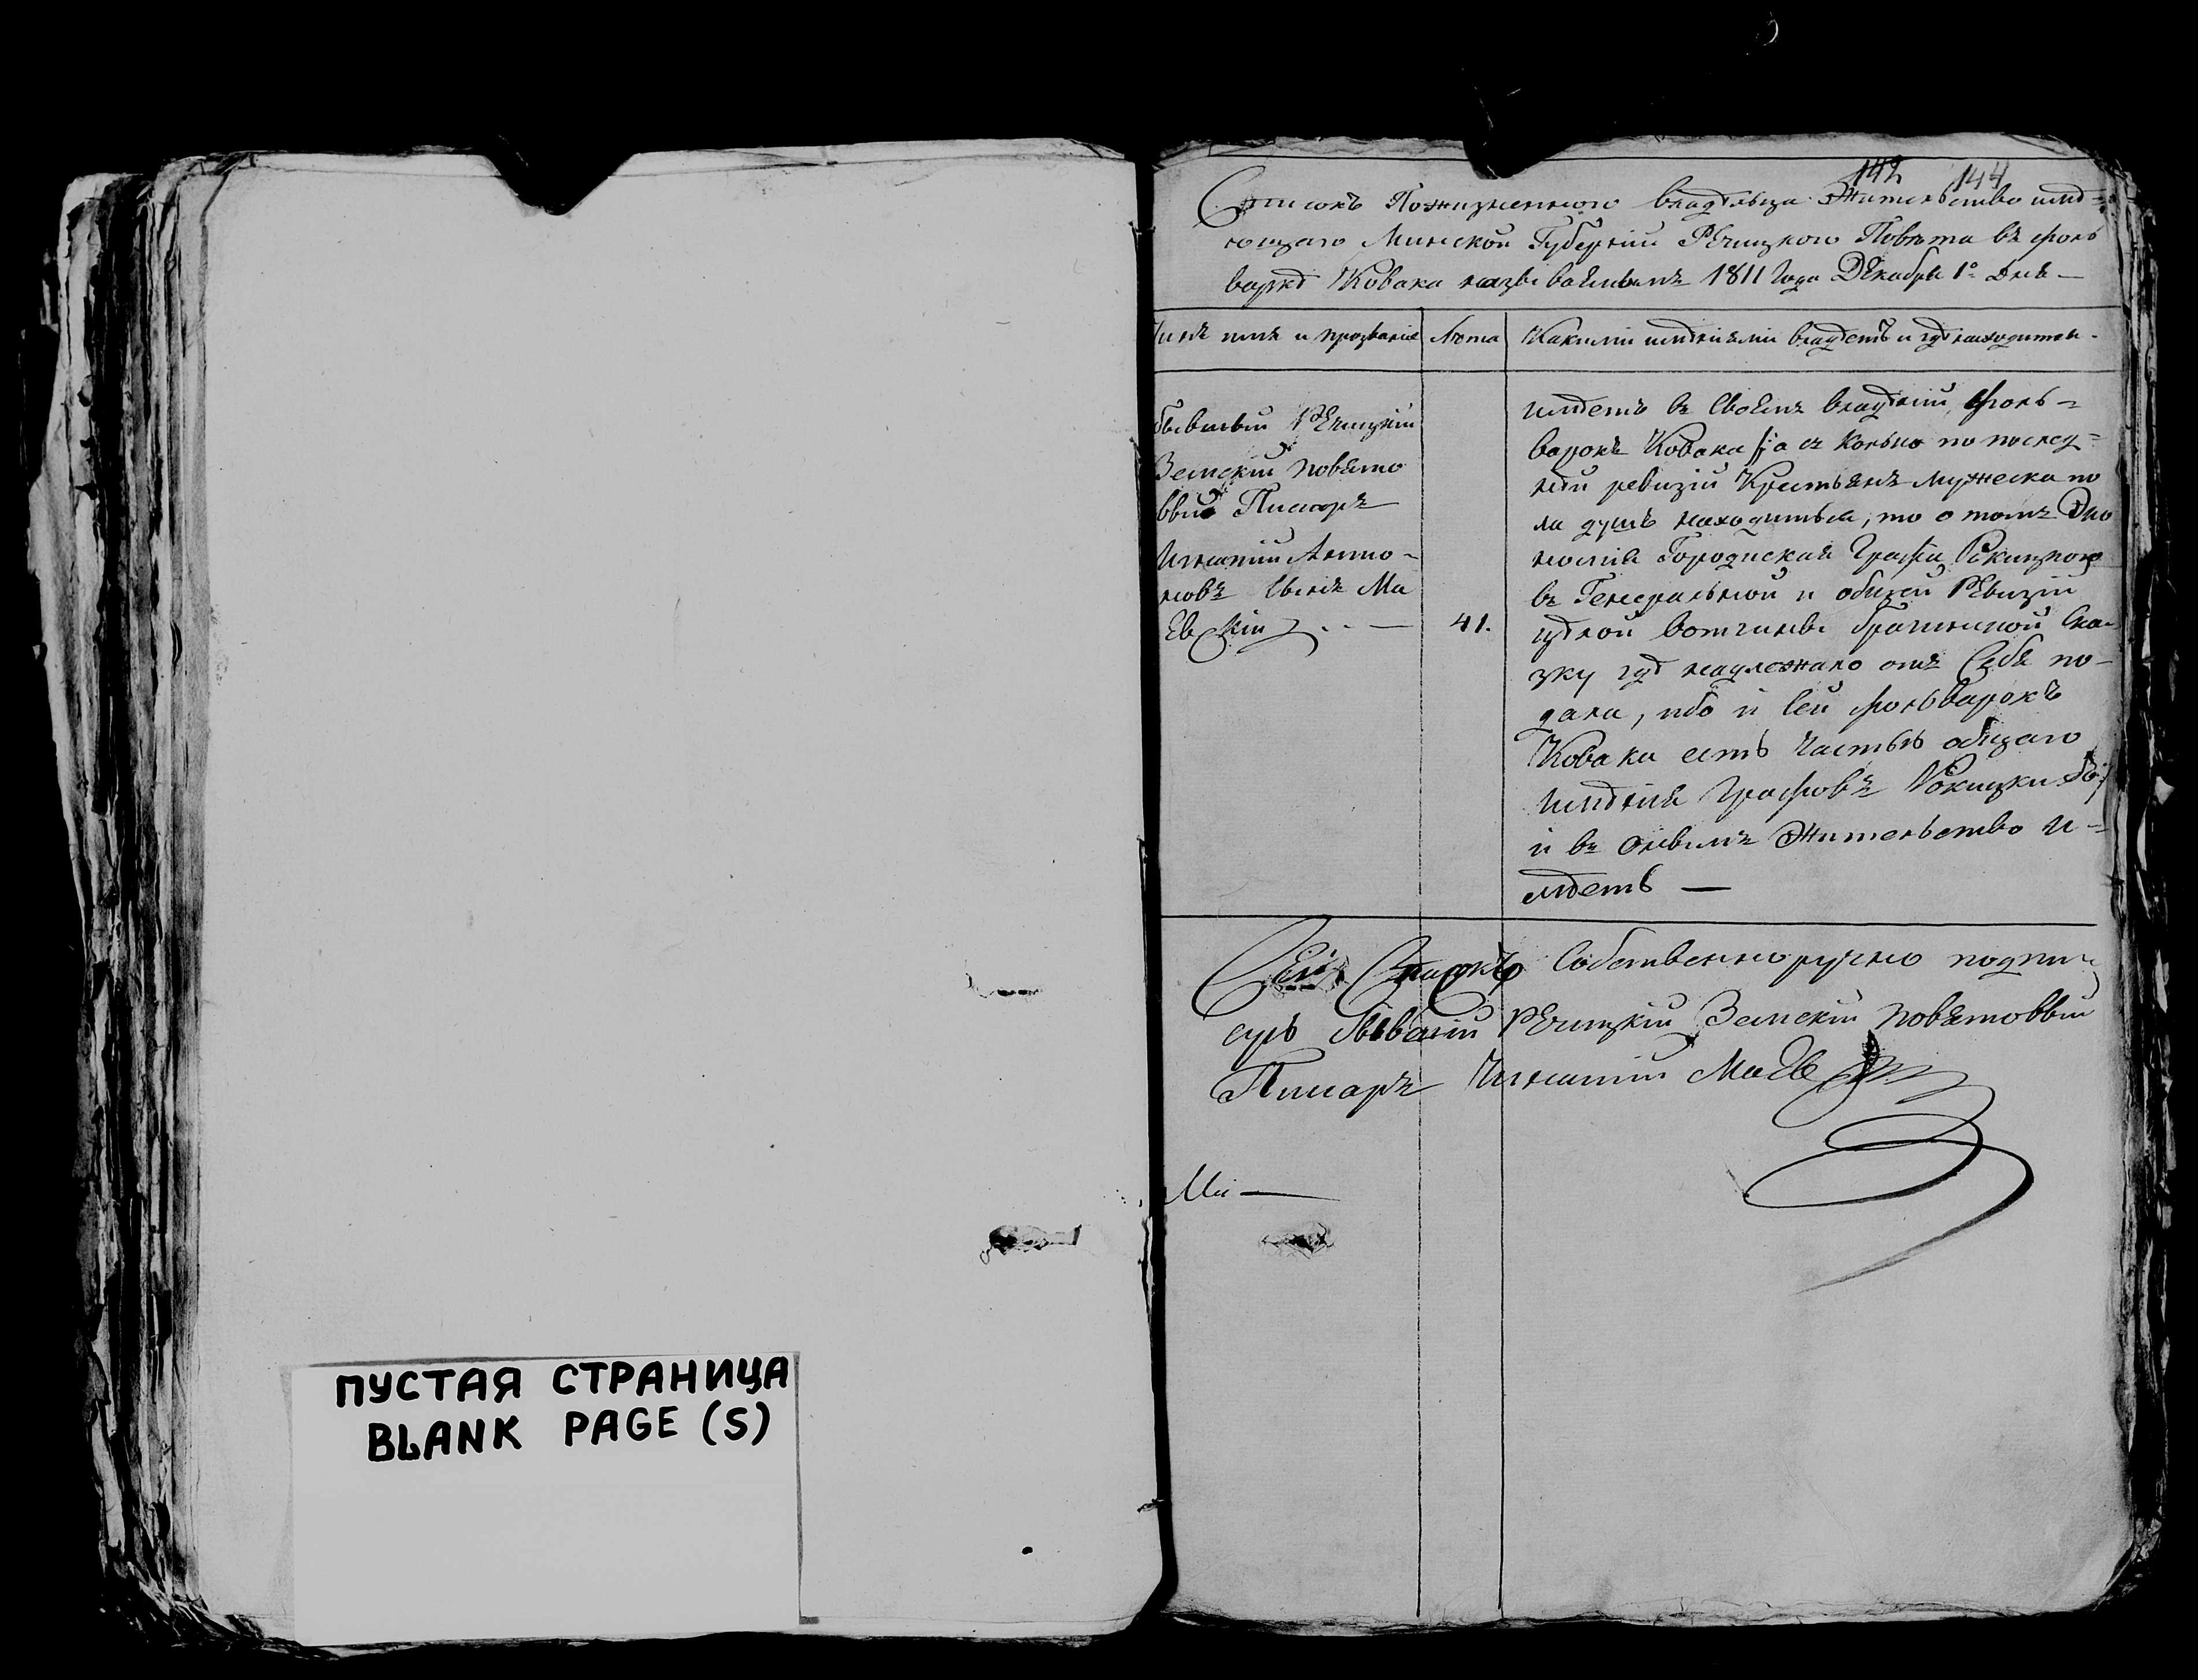 ПУСТАЯ СТРАНИЦА
BLANK PAGE (S)
142 144
Списокъ Пожизненного владѣльца Жительство имѣ=
ющаго Минской Губерніи Речицкого Повѣта въ фоль
варкѣ Ковака называемымъ 1811 Года Декабря 1º Дня —
Чинъ имя и прозваніе
Лѣта
Какими имѣніями владѣетъ и гдѣ находится.
бывшый Речицкій
Земскій повято
вый Писарь
Игнатій Анто-
новъ сынъ Ма
Евскій
41.
имѣетъ въ своемъ владѣніи фоль=
варокъ Ковака а съ колько по послед=
ней ревизіи Крестьянъ мужеска по
ла душъ находиться, то о томъ Эко
номія Городиская Графа Рокицкого
въ Генеральной и общей Ревизіи
цѣлой вотчины брагинской Ска-
зку гдѣ надлежало отъ Себя по-
дала, ибо и сей фольварокъ
Ковака есть Частью общаго
имѣнія Графовъ Рокицкихъ
и въ ономъ Жительство и=
мѣетъ —
Сей Списокъ Собственноручно подпи=
сулъ бывшій Речицкій Земскій повятовый
Писарь Игнатій Маевскій